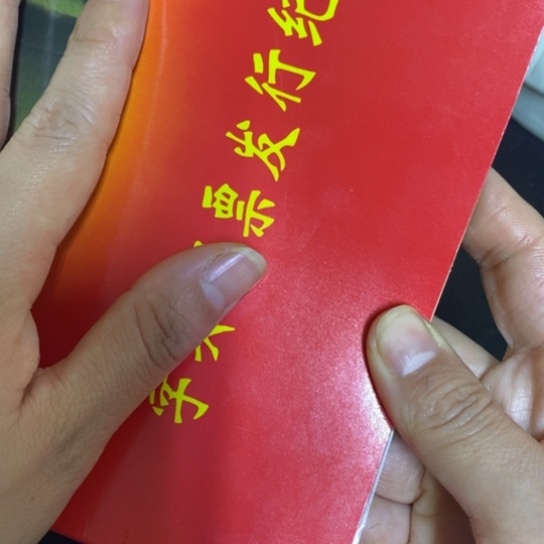 字票发行纪